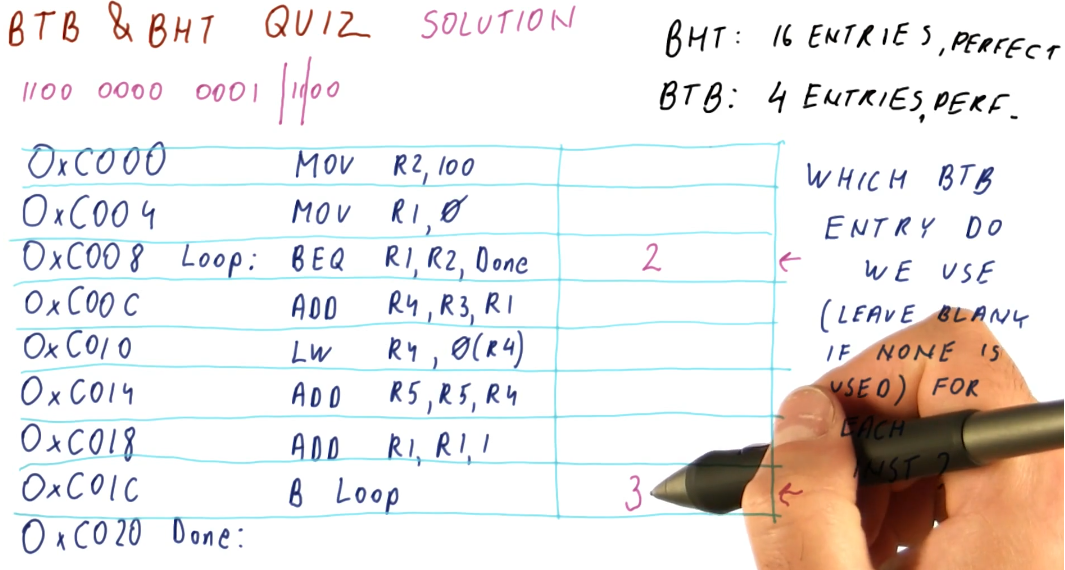 BTB & BHT QUIZ SOLUTION
BHT: 16 ENTRIES, PERFECT
1100 0000 0001 1100
BTB: 4 ENTRIES, PERF.
0xC000 MOV R2, 100
0xC004 MOV R1, 0
0xC008 Loop: BEQ R1, R2, Done 2 ←
0xC00C ADD R4, R3, R1
0xC010 LW R4, 0(R4)
0xC014 ADD R5, R5, R4
0xC018 ADD R1, R1, 1
0xC01C B Loop 3 ←
0xC020 Done:
WHICH BTB
ENTRY DO
WE USE
(LEAVE BLANK
IF NONE IS
USED) FOR
EACH
INST?